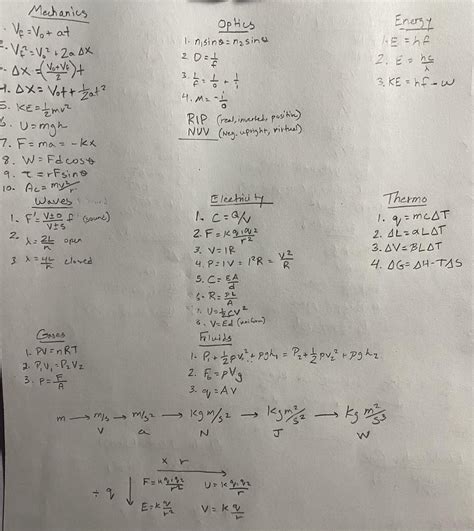 Mechanics
1. Vf = V0 + at
2. Vf² = V0² + 2aΔX
3. ΔX = (V0+Vf/2)t
4. ΔX = V0t + 1/2at²
5. KE = 1/2mv²
6. U = mgh
7. F = ma = -kx
8. W = Fdcosθ
9. τ = rFsinθ
10. Ac = mv²/r
Optics
1. n1sinθ = n2sinθ
2. D = 1/f
3. 1/f = 1/o + 1/i
4. M = -i/o
RIP (real, inverted, positive)
NUV (Neg, upright, virtual)
Energy
1. E = hf
2. E = hc/λ
3. KE = hf - W
Waves
1. F' = V±O/V±S f (source)
2. λ = 2L/n open
3 λ = 4L/n closed
Electricity
1. C = Q/V
2. F = kq1q2/r²
3. V = IR
4. P = IV = I²R = V²/R
5. C = EA/d
6. R = ρL/A
7. U = 1/2CV²
8. V = Ed (uniform)
Thermo
1. q = mcΔT
2. ΔL = αLΔT
3. ΔV = BLΔT
4. ΔG = ΔH-TΔS
Gases
1. PV = nRT
2. P1V1 = P2V2
3. P = F/A
Fluids
1. P1 + 1/2ρv1² + ρgh1 = P2 + 1/2ρv2² + ρgh2
2. Fb = ρVg
3. q = AV
m → m/s → m/s² → kgm/s² → kgm²/s² → kg m²/s³
V a N J W
x r
÷ q
F = kq1q2/r² U = kq1q2/r
E = kq/r² V = kq/r